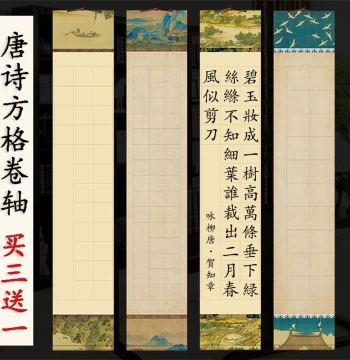 唐诗方格卷轴
买三送一
碧玉妝成一樹高萬條垂下綠
絲縧不知細葉誰裁出二月春
風似剪刀
咏柳唐·賀知章